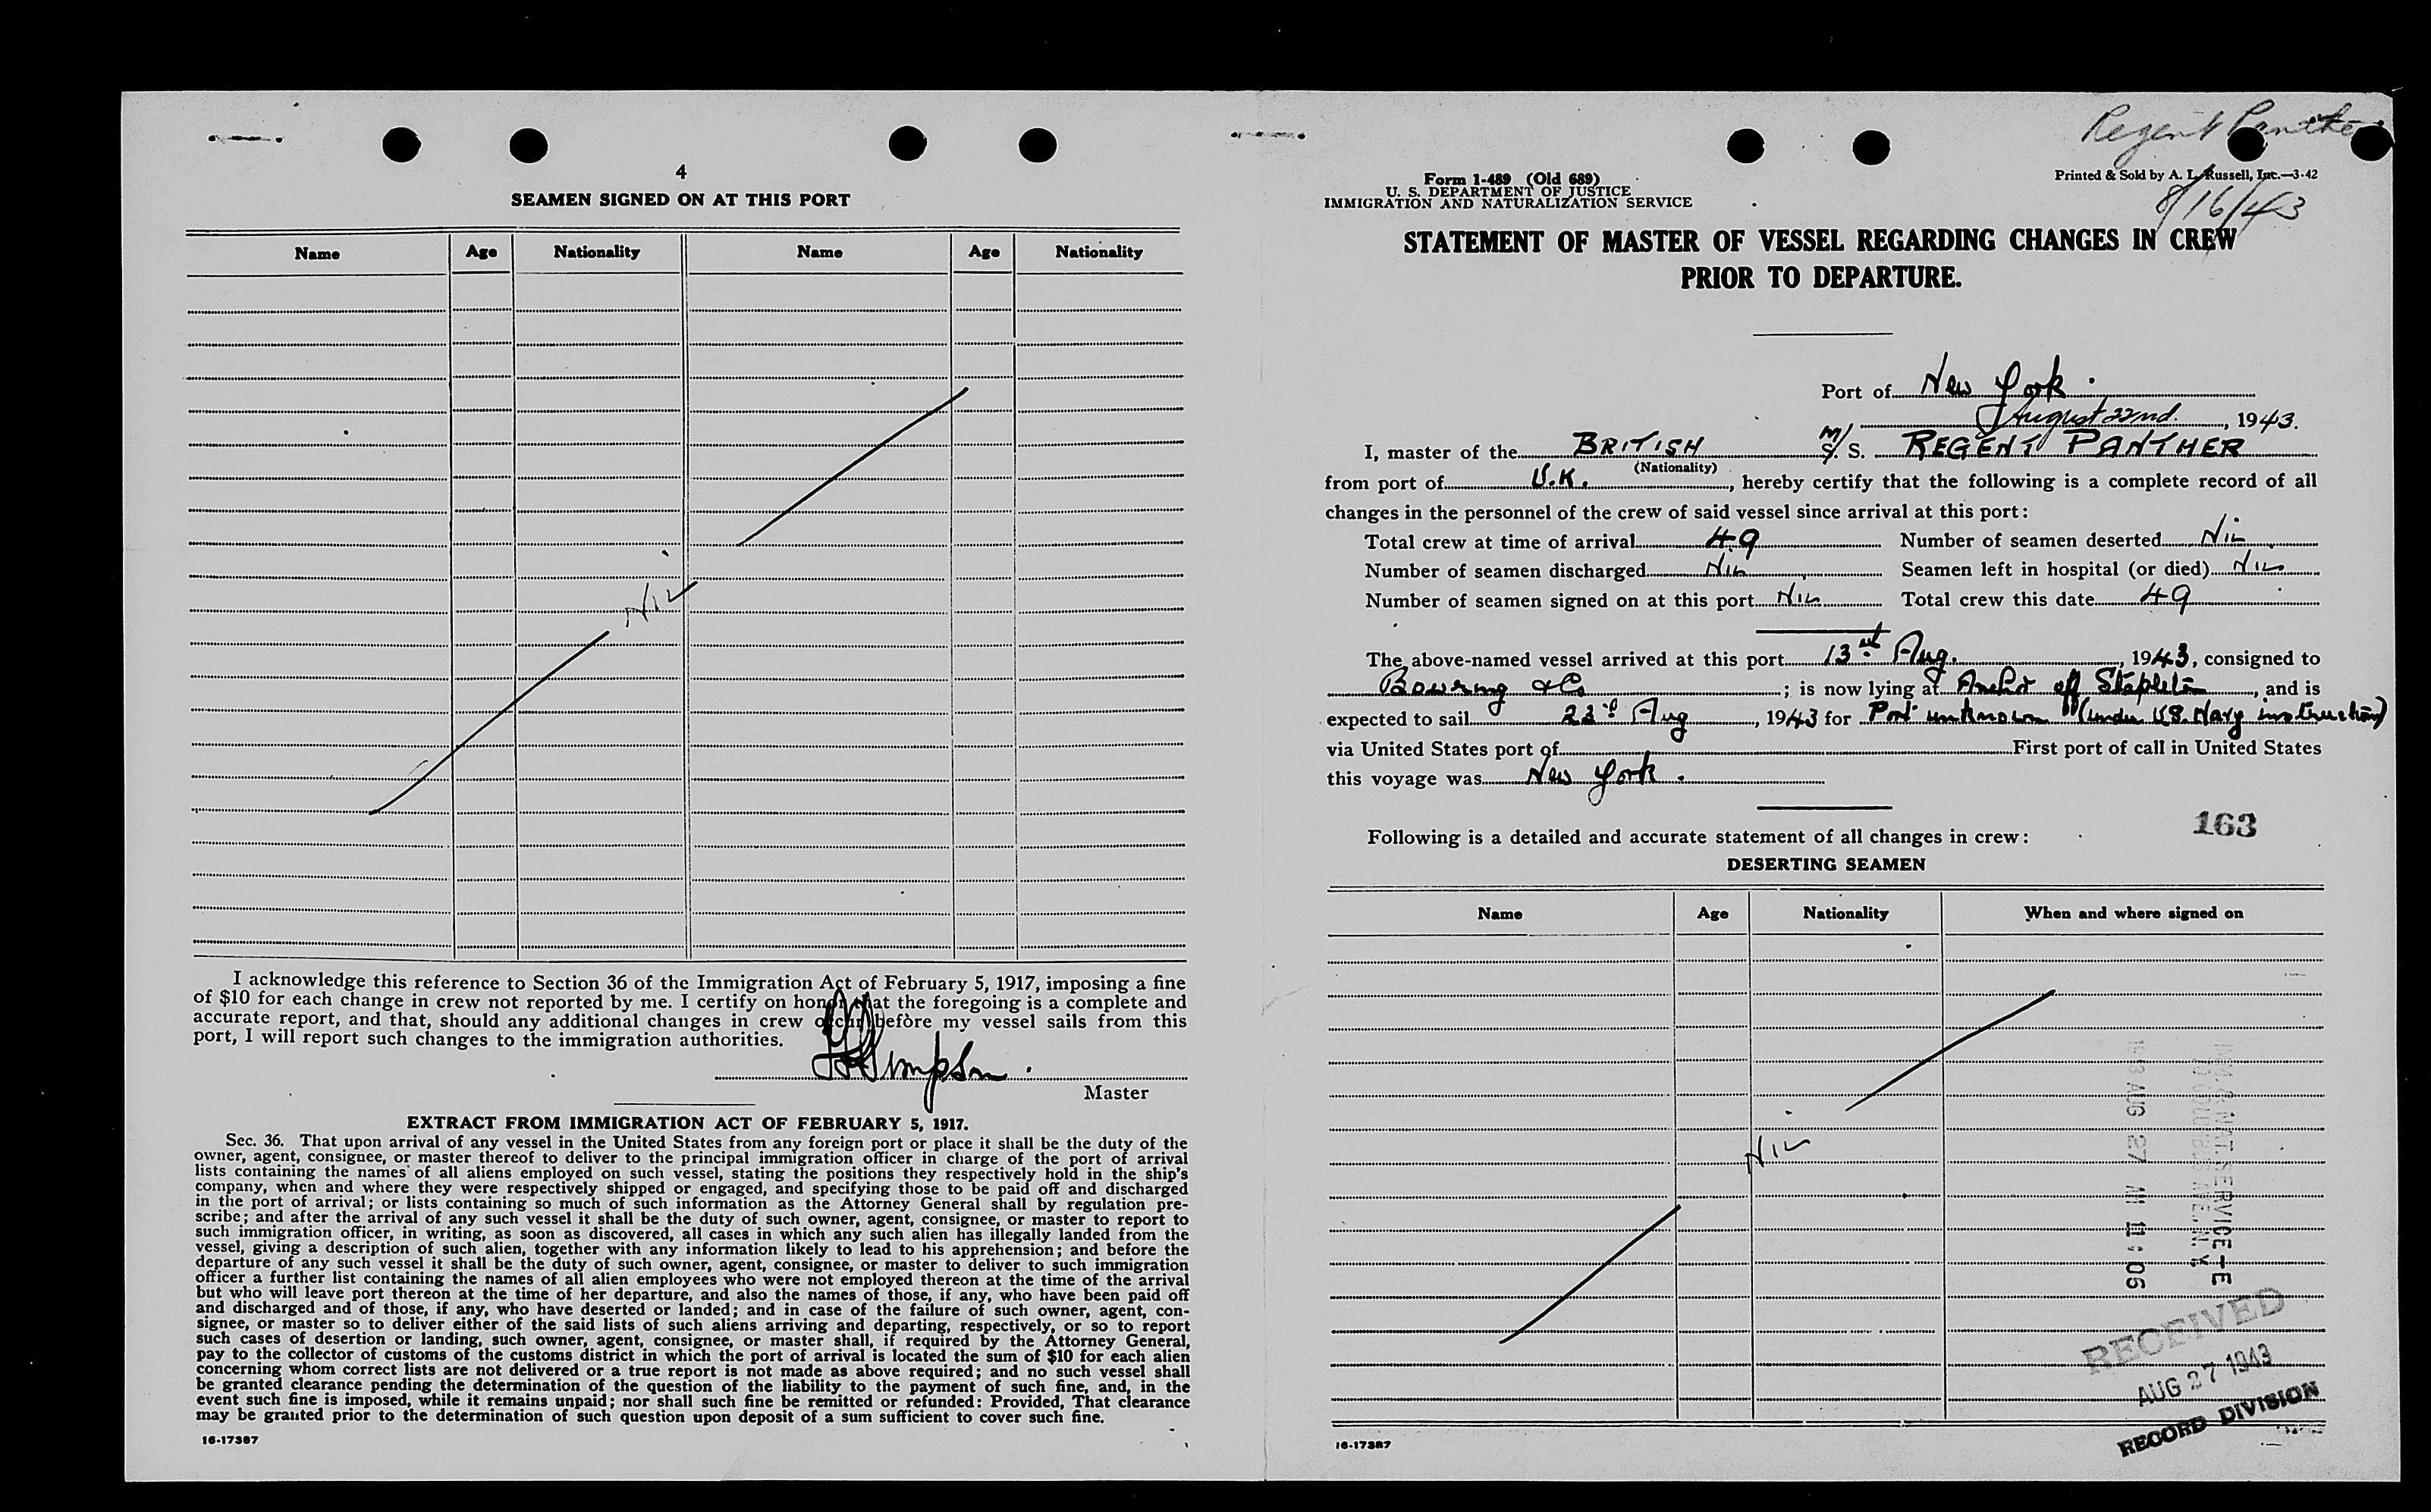 4
SEAMEN SIGNED ON AT THIS PORT
Name Age Nationality Name Age Nationality
Nil
I acknowledge this reference to Section 36 of the Immigration Act of February 5, 1917, imposing a fine
of $10 for each change in crew not reported by me. I certify on honor that the foregoing is a complete and
accurate report, and that, should any additional changes in crew occur before my vessel sails from this
port, I will report such changes to the immigration authorities.
Simpson
Master
EXTRACT FROM IMMIGRATION ACT OF FEBRUARY 5, 1917.
Sec. 36. That upon arrival of any vessel in the United States from any foreign port or place it shall be the duty of the
owner, agent, consignee, or master thereof to deliver to the principal immigration officer in charge of the port of arrival
lists containing the names of all aliens employed on such vessel, stating the positions they respectively hold in the ship's
company, when and where they were respectively shipped or engaged, and specifying those to be paid off and discharged
in the port of arrival; or lists containing so much of such information as the Attorney General shall by regulation pre-
scribe; and after the arrival of any such vessel it shall be the duty of such owner, agent, consignee, or master to report to
such immigration officer, in writing, as soon as discovered, all cases in which any such alien has illegally landed from the
vessel, giving a description of such alien, together with any information likely to lead to his apprehension; and before the
departure of any such vessel it shall be the duty of such owner, agent, consignee, or master to deliver to such immigration
officer a further list containing the names of all alien employees who were not employed thereon at the time of the arrival
but who will leave port thereon at the time of her departure, and also the names of those, if any, who have been paid off
and discharged and of those, if any, who have deserted or landed; and in case of the failure of such owner, agent, con-
signee, or master so to deliver either of the said lists of such aliens arriving and departing, respectively, or so to report
such cases of desertion or landing, such owner, agent, consignee, or master shall, if required by the Attorney General,
pay to the collector of customs of the customs district in which the port of arrival is located the sum of $10 for each alien
concerning whom correct lists are not delivered or a true report is not made as above required; and no such vessel shall
be granted clearance pending the determination of the question of the liability to the payment of such fine, and, in the
event such fine is imposed, while it remains unpaid; nor shall such fine be remitted or refunded: Provided, That clearance
may be granted prior to the determination of such question upon deposit of a sum sufficient to cover such fine.
16-17387
Regent Panther
Form 1-489 (Old 689)
U. S. DEPARTMENT OF JUSTICE
IMMIGRATION AND NATURALIZATION SERVICE
Printed & Sold by A. L. Russell, Inc.—3-42
8/16/43
STATEMENT OF MASTER OF VESSEL REGARDING CHANGES IN CREW
PRIOR TO DEPARTURE.
Port of New York.
August 22nd., 1943.
I, master of the BRITISH M/S. S. REGENT PANTHER
(Nationality)
from port of U.K., hereby certify that the following is a complete record of all
changes in the personnel of the crew of said vessel since arrival at this port:
Total crew at time of arrival 49 Number of seamen deserted Nil
Number of seamen discharged Nil Seamen left in hospital (or died) Nil
Number of seamen signed on at this port Nil Total crew this date 49
The above-named vessel arrived at this port 13th Aug., 1943, consigned to
Bowring & Co; is now lying at Anchor off Stapleton, and is
expected to sail 23rd Aug, 1943 for Port unknown (under U.S. Navy instruction)
via United States port of First port of call in United States
this voyage was New York.
163
Following is a detailed and accurate statement of all changes in crew:
DESERTING SEAMEN
Name Age Nationality When and where signed on
Nil
IMM. & NAT. SERVICE-E
70 COLUMBUS AVE., N.Y.
1943 AUG 27 AM 11:06
RECEIVED
AUG 27 1943
RECORD DIVISION
16-17387